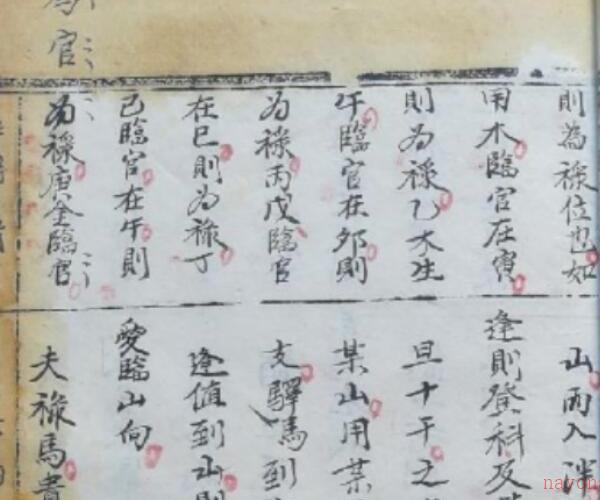 則為祿位也如
用木臨官在寅
則為祿乙木生
午臨官在卯則
為祿丙戊臨官
在巳則為祿丁
己臨官在午則
為祿庚金臨官
為官
山丙入泮
逢則登科及
旦十干之
某山用某
支驛馬到
逢值到山則
愛臨山向
夫祿馬貴
nayon